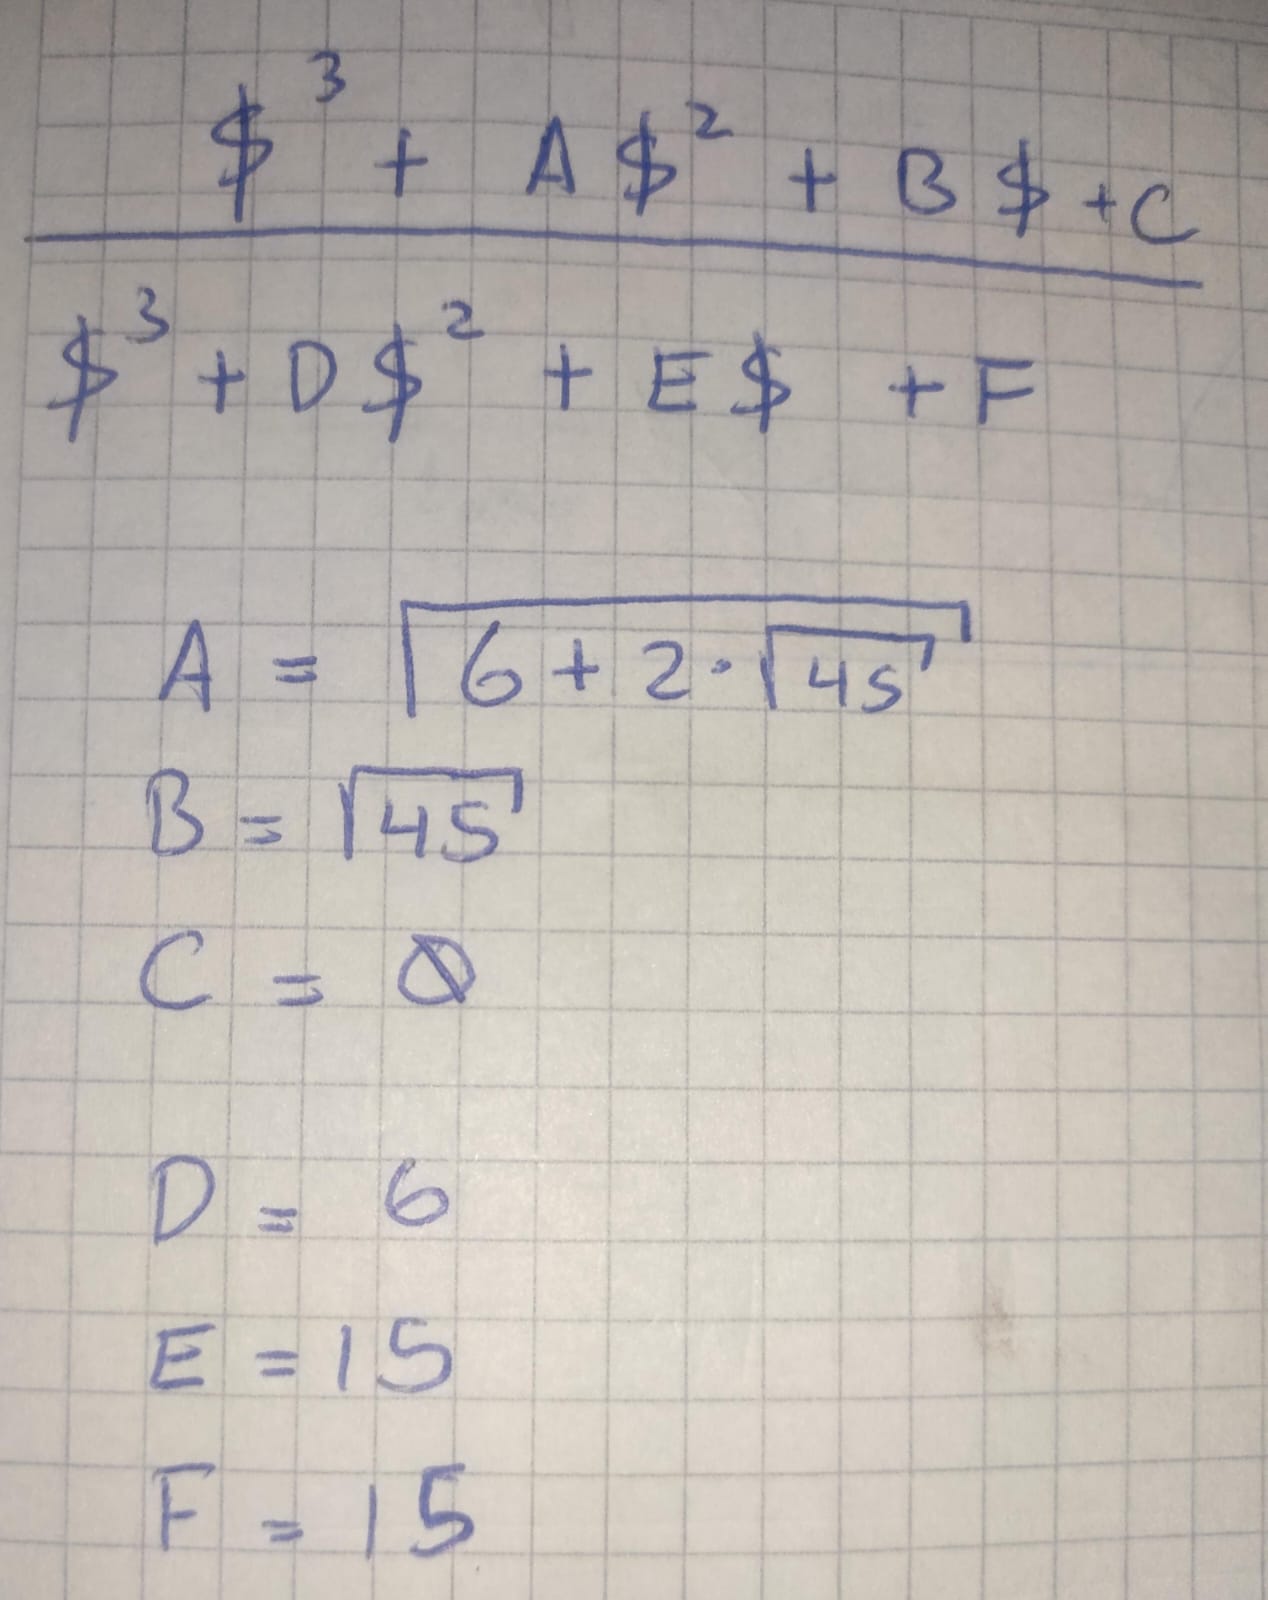 $³ + A$² + B$ + C
$³ + D$² + E$ + F
A = √(6 + 2·√45)
B = √45
C = 0
D = 6
E = 15
F = 15